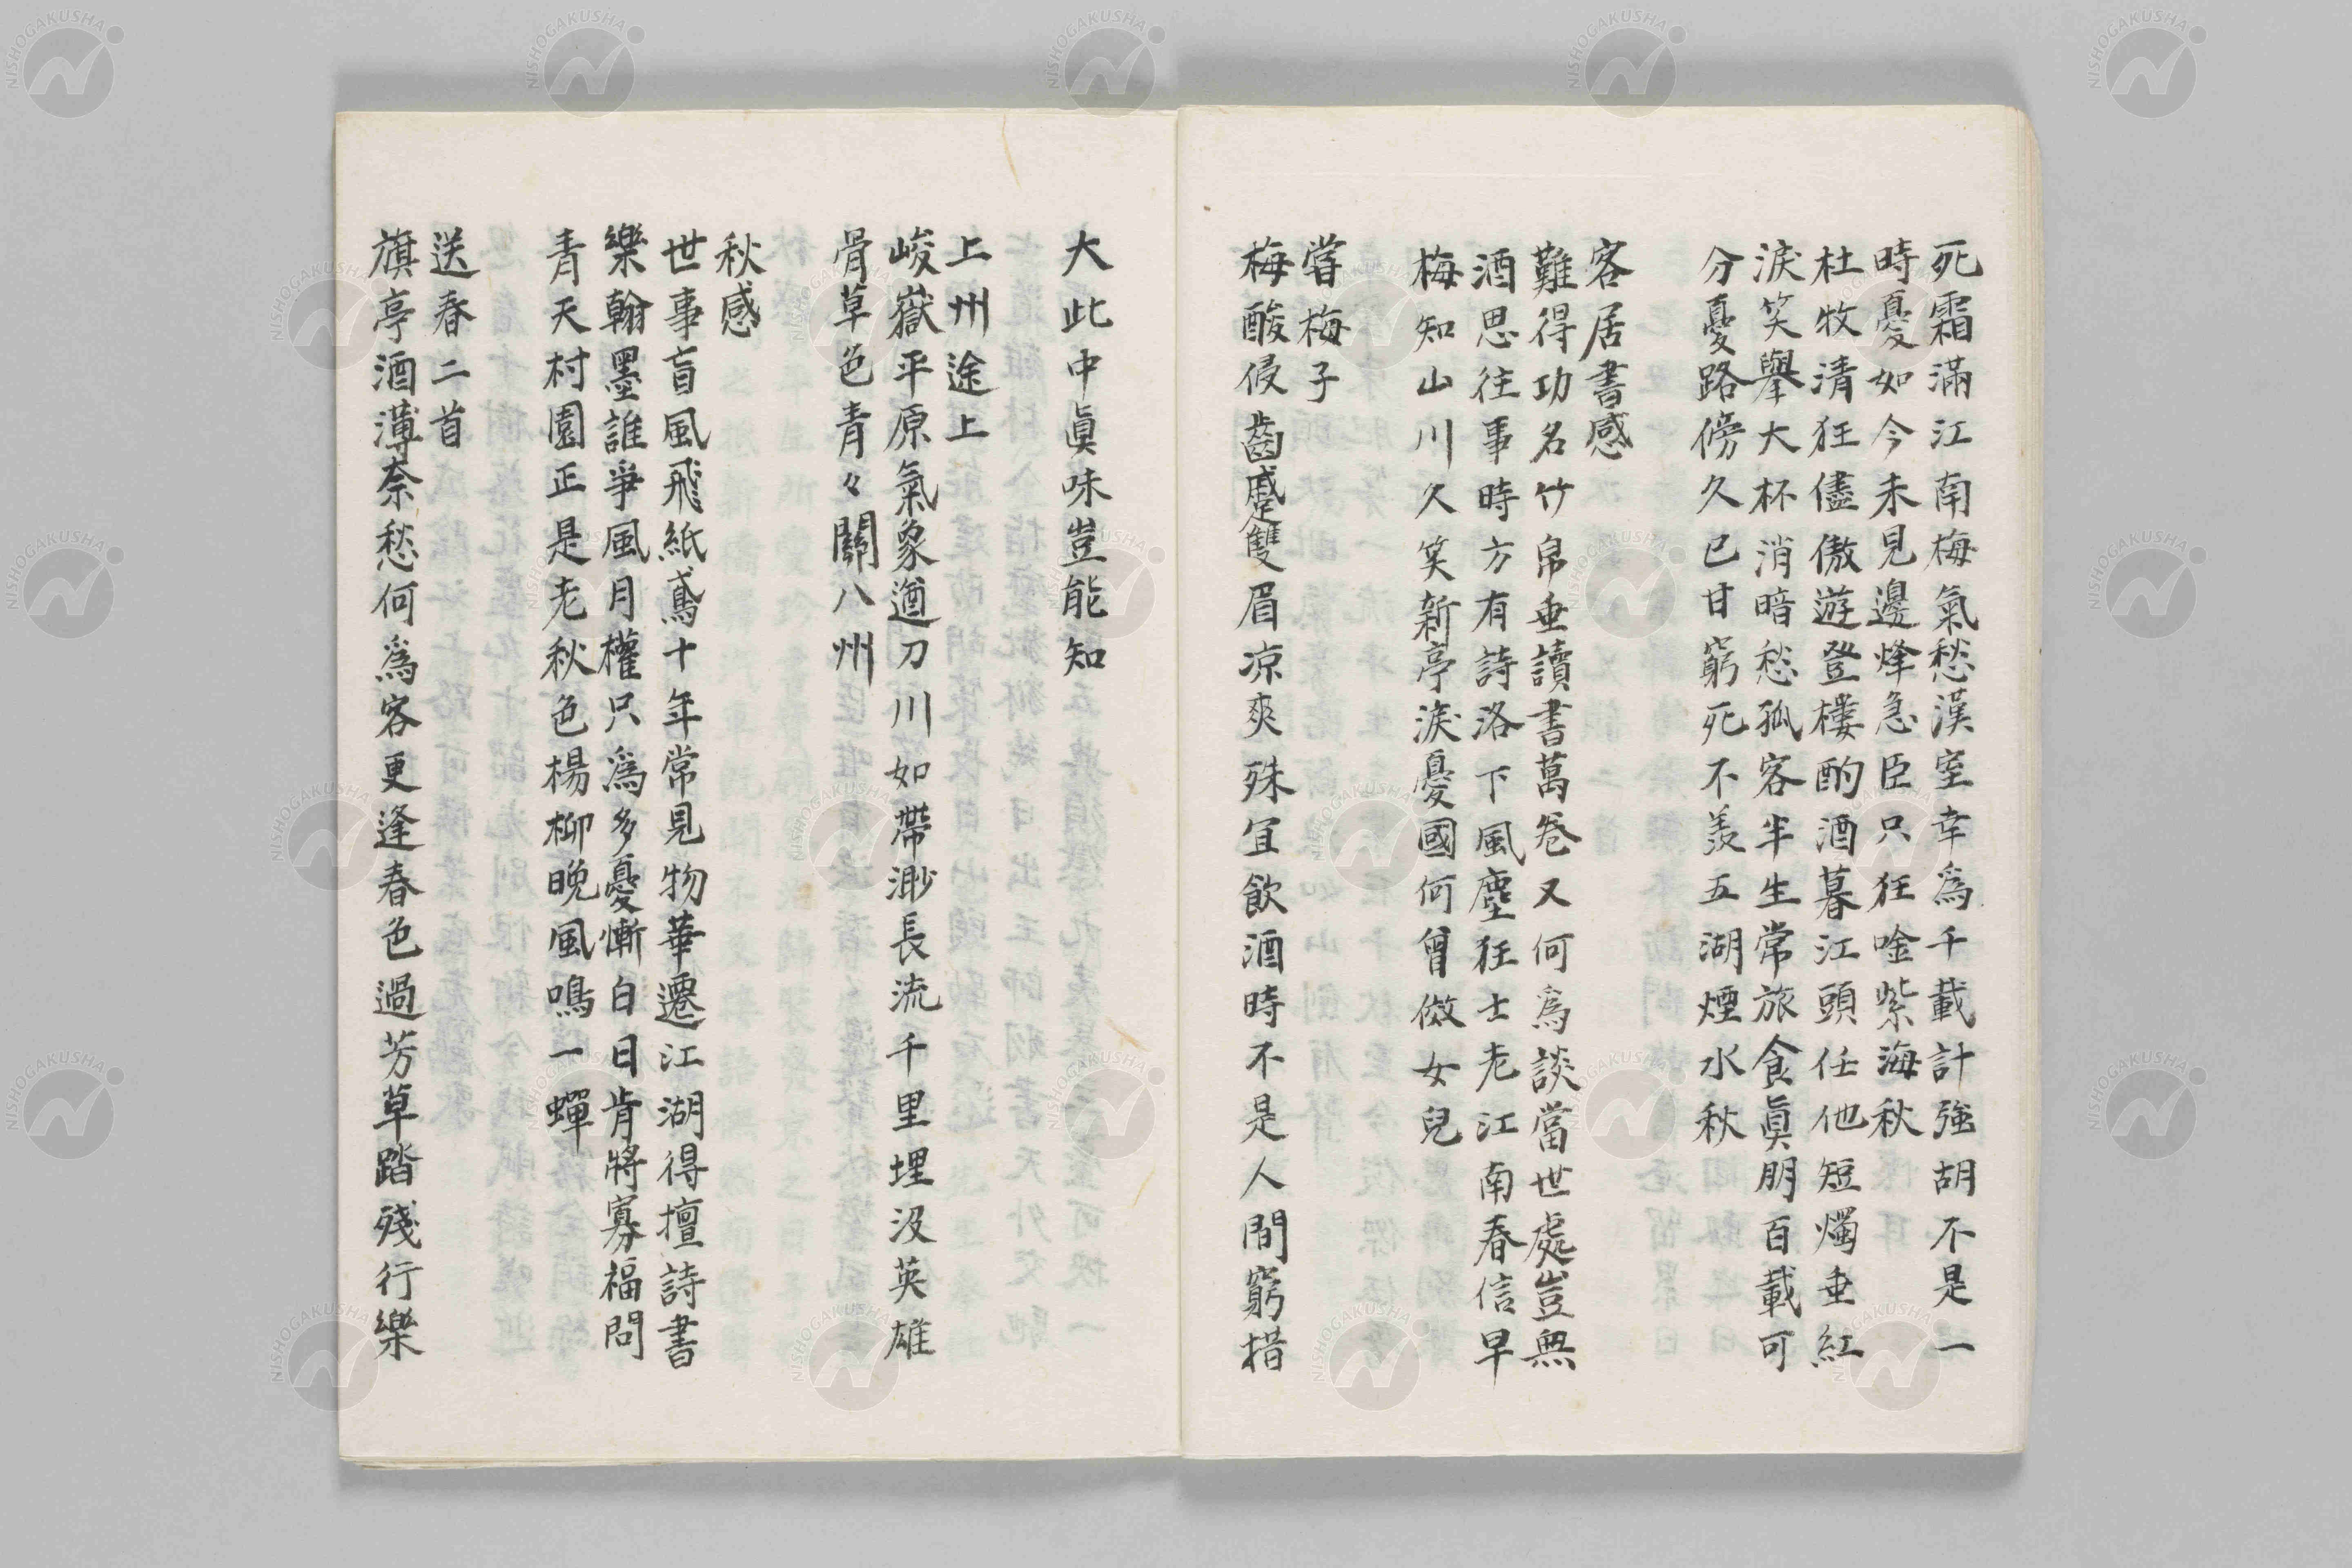 死霜滿江南梅氣愁漢室幸爲千載計強胡不是一
時憂如今未見邊烽急臣只狂唫紫海秋
杜牧清狂儘傲遊登樓酌酒暮江頭任他短燭垂紅
淚笑擧大杯消暗愁孤客半生常旅食眞朋百載可
分憂路傍久已甘窮死不羨五湖煙水秋
客居書感
難得功名竹帛垂讀書萬卷又何爲談當世處豈無
酒思往事時方有詩洛下風塵狂士老江南春信早
梅知山川久笑新亭淚憂國何曾倣女兒
嘗梅子
梅酸侵齒蹙雙眉凉爽殊宜飲酒時不是人間窮措
大此中眞味豈能知
上州途上
峻嶽平原氣象遒刀川如帶渺長流千里埋沒英雄
骨草色青々關八州
秋感
世事盲風飛紙鳶十年常見物華遷江湖得擅詩書
樂翰墨誰爭風月權只爲多憂慚白日肯將寡福問
青天村園正是老秋色楊柳晚風鳴一蟬
送春二首
旗亭酒薄奈愁何爲客更逢春色過芳草踏殘行樂
NISHOGAKUSHA